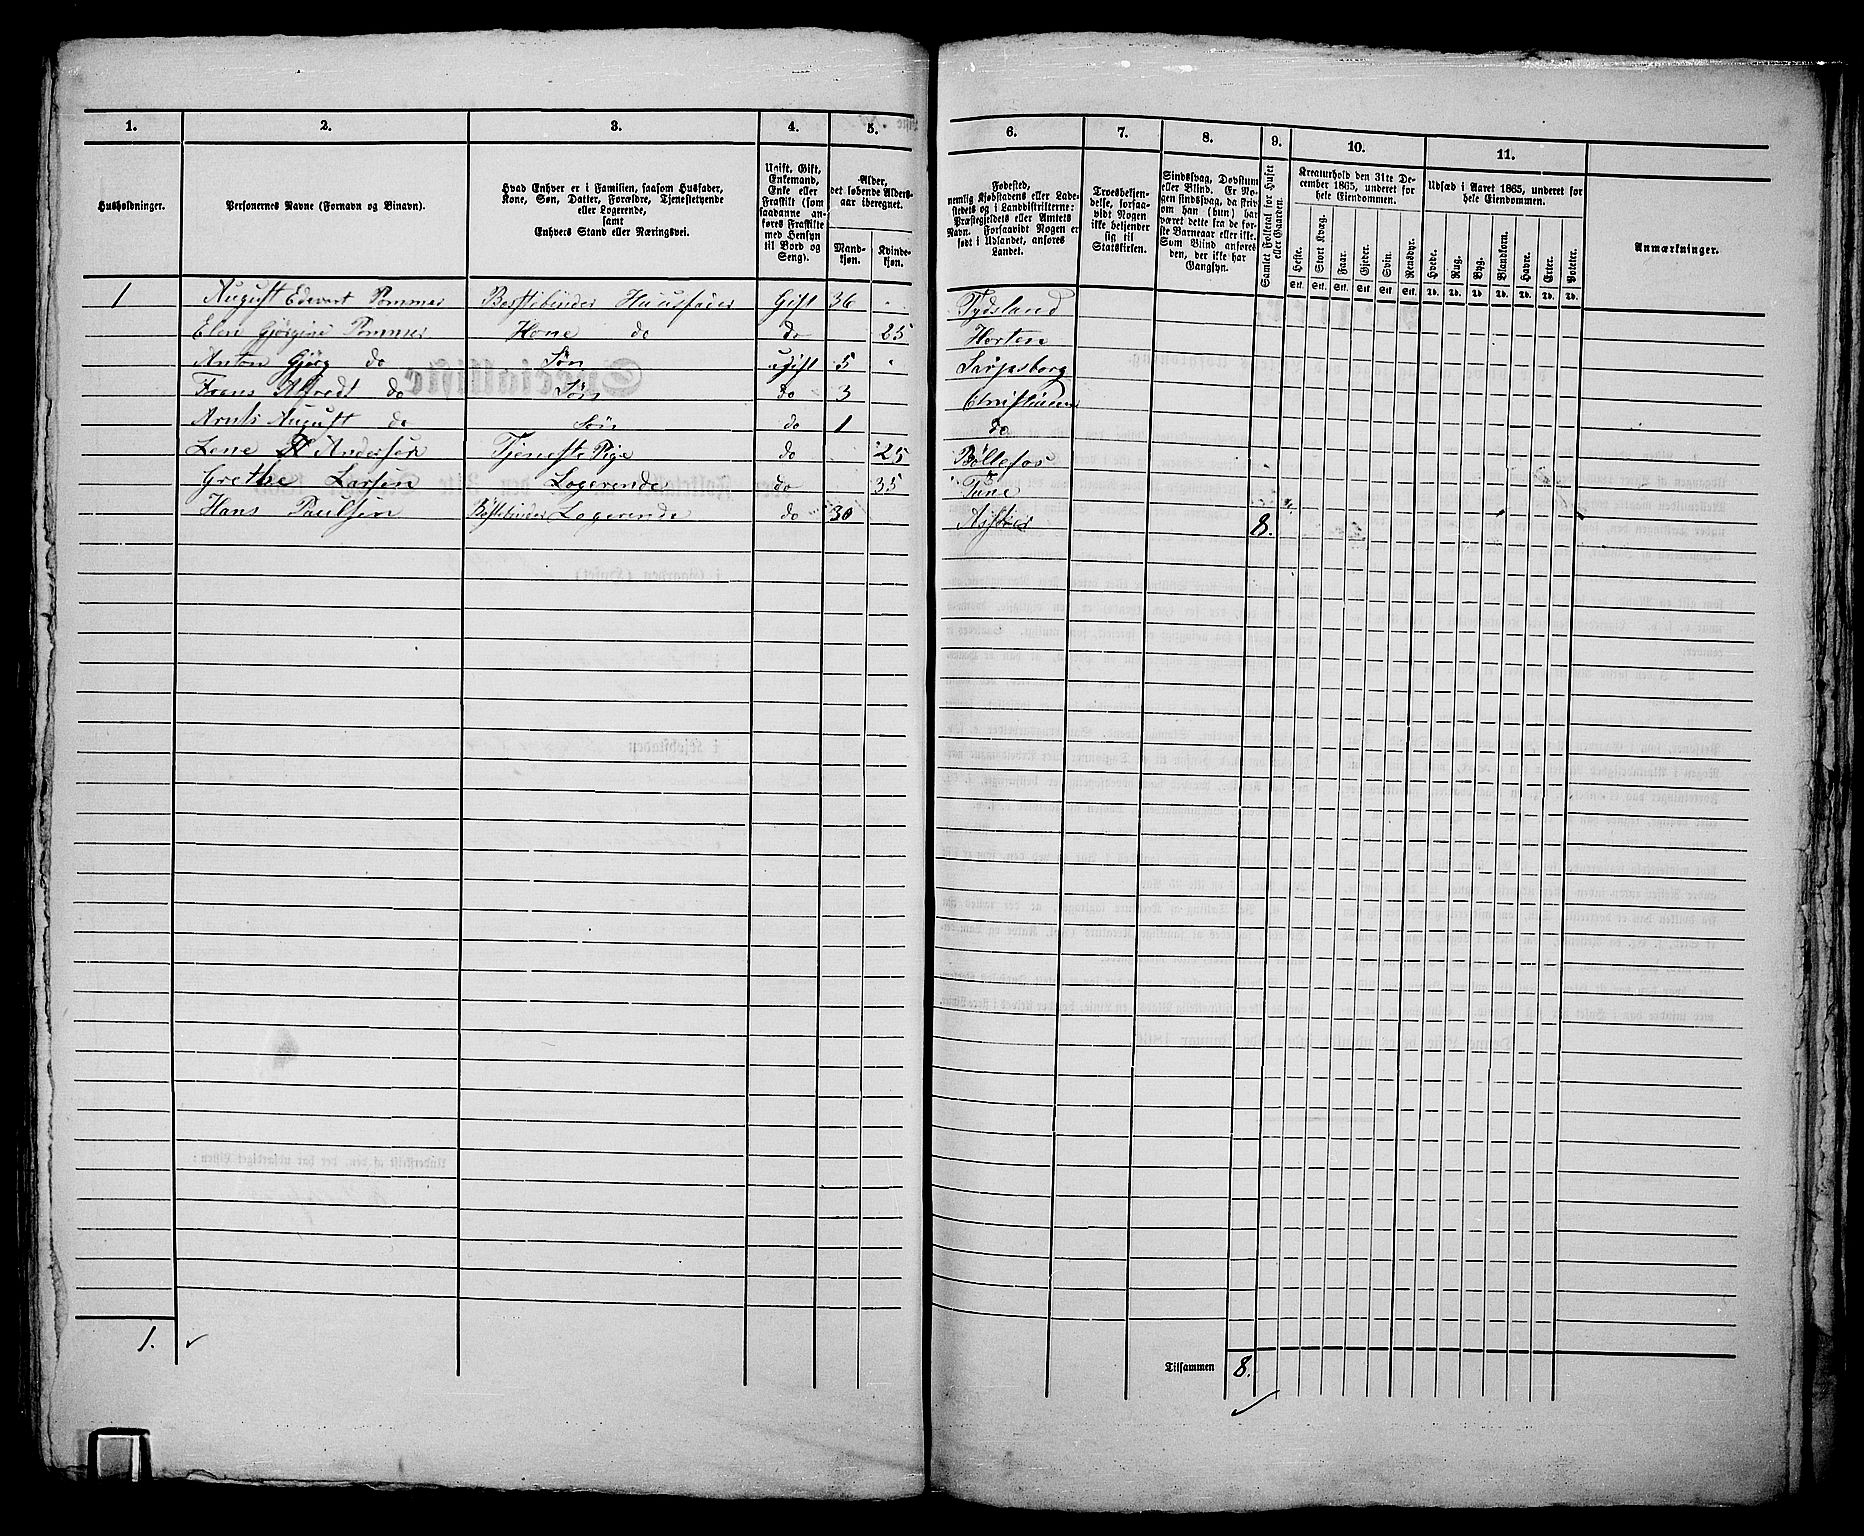 1. 2. 3. 4. 5. 6. 7. 8. 9. 10. 11.
Husholdninger.
Personernes Navne (Fornavn og Binavn).
Hvad Enhver er i Familien, saasom Husfader,
Kone, Søn, Datter, Forældre, Tjenestetyende
eller Logerende,
samt
Enhvers Stand eller Næringsvei.
Ugift, Gift,
Enkemand,
Enke eller
Fraskilt (som
saadanne an-
føres Fraskilte
med Hensyn
til Bord og
Seng).
Alder,
det løbende Alders-
aar iberegnet.
Mand-
kjøn.
Kvinde-
kjøn.
Fødested,
nemlig Kjøbstadens eller Lade-
stedets og i Landdistrikterne:
Præstegjeldets eller Amtets
Navn. Forsaavidt Nogen er
født i Udlandet, anføres
Landet.
Troesbekjen-
delse, forsaa-
vidt Nogen
ikke bekjender
sig til
Statskirken.
Sindssvag, Døvstum
eller Blind. Er No-
gen sindssvag, da skriv
om han (hun) har
været dette fra de før-
ste Barneaar eller ikke.
Som Blind anføres
den, der ikke har
Gangsyn.
Samlet Folketal for Huset
eller Gaarden.
Kreaturhold den 31te De-
cember 1865, underet for
hele Eiendommen.
Heste. Stort Kvæg. Faar. Gjeder. Svin. Rensdyr.
Stk. Stk. Stk. Stk. Stk. Stk.
Udsæd i Aaret 1865, underet for
hele Eiendommen.
Hvede. Rug. Byg. Blandkorn. Havre. Erter. Poteter.
Td. Td. Td. Td. Td. Td. Td.
Anmærkninger.
1 August Edevart Pommer Børstebinder Huusfader Gift 36 Tydsland
Elen Gjørgine Pommer Kone do do 25 Horten
Anton Gjörg do Søn ugift 5 Sarpsborg
Frans Alfredt do Søn do 3
Arnts August do Søn do 1 do
Lene Andersen Tjeneste Pige do 25
Grethe Larsen Logerende do 35 Tune
Hans Paulsen Børstebinder Logerende do 30 8.
1.
Tilsammen 8.